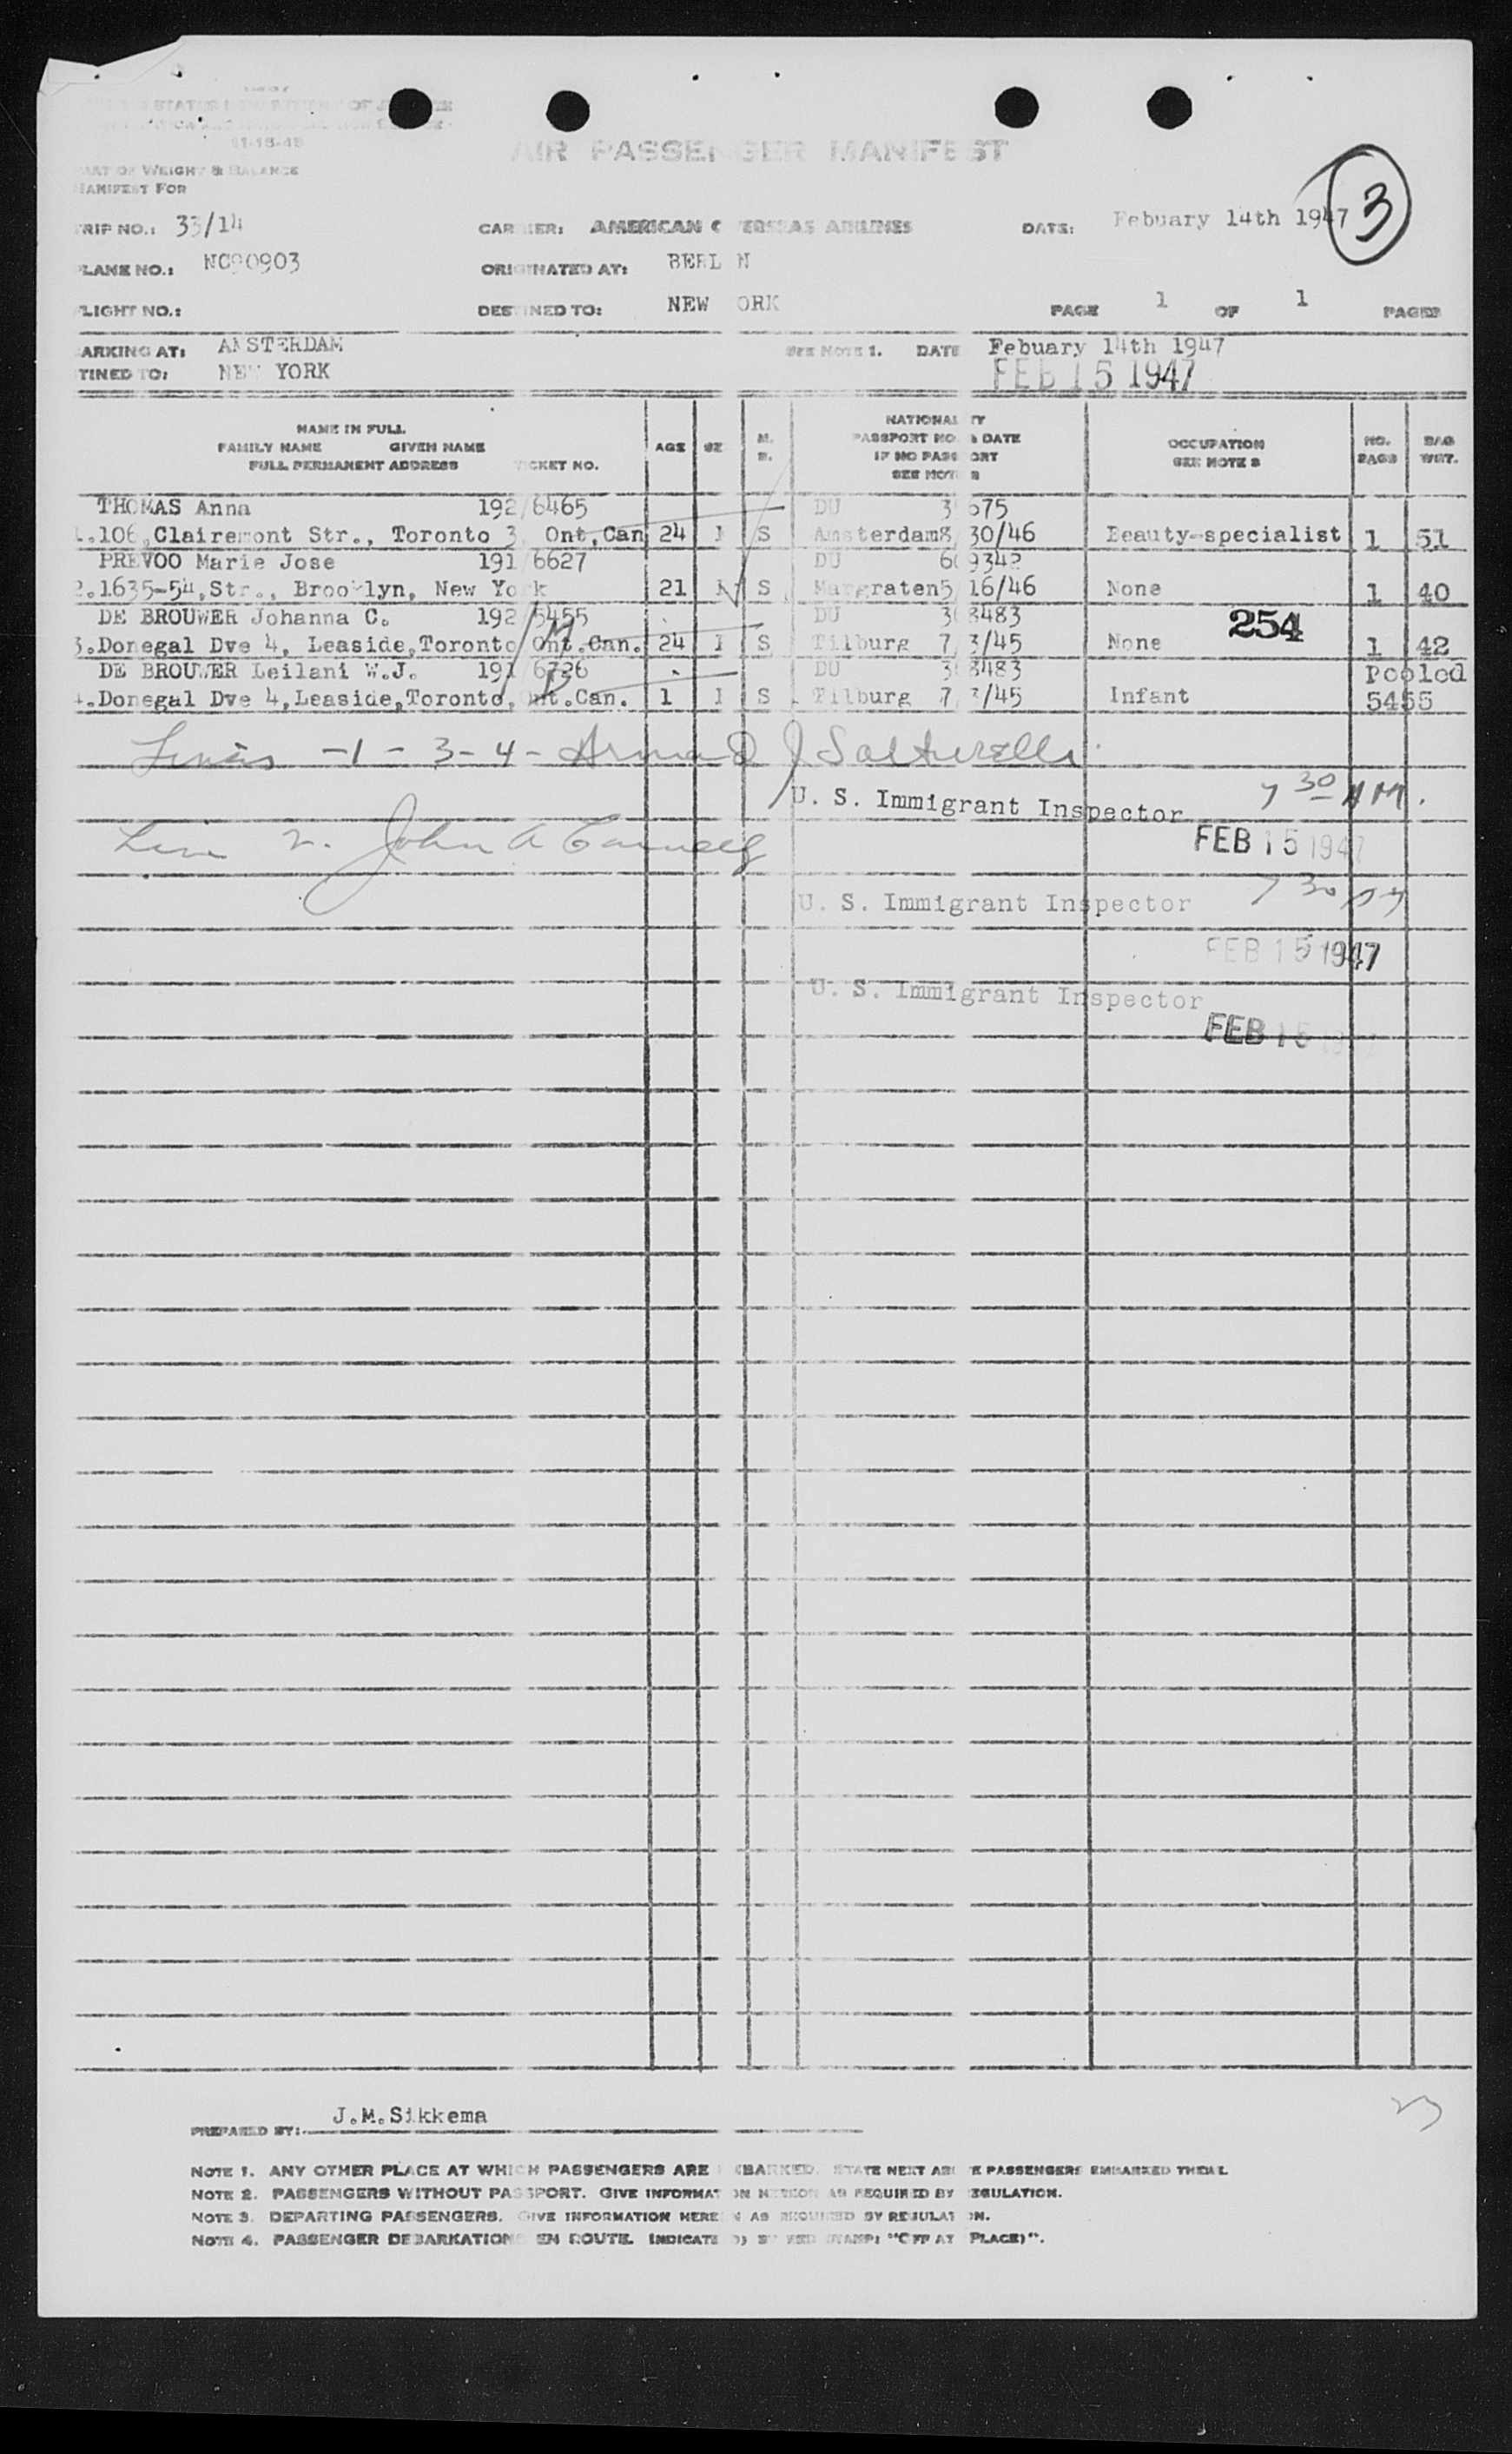 11-15-45
AIR PASSENGER MANIFEST
ART OF WEIGHT & BALANCE
MANIFEST FOR
3
RIP NO.: 33/14 CARRIER: AMERICAN OVERSEAS AIRLINES DATE: Febuary 14th 1947
LANE NO.: NC90903 ORIGINATED AT: BERLIN
LIGHT NO.: DESTINED TO: NEW YORK PAGE 1 OF 1 PAGES
ARKING AT: AMSTERDAM SEE NOTE 1. DATE Febuary 14th 1947
TINED TO: NEW YORK FEB 15 1947
NAME IN FULL
FAMILY NAME GIVEN NAME
FULL PERMANENT ADDRESS TICKET NO.
AGE SE M. S.
NATIONALITY
PASSPORT NO. & DATE
IF NO PASSPORT
SEE NOTE 2
OCCUPATION
SEE NOTE 3
NO. BAGS
BAG WGT.
THOMAS Anna 192/6465 DU 3 675
1.106,Clairemont Str., Toronto 3, Ont,Can 24 S Amsterdam8/30/46 Beauty-specialist 1 51
PREVOO Marie Jose 191/6627 DU 609342
2.1635-54,Str., Brooklyn, New York 21 S Margraten5/16/46 None 1 40
DE BROUWER Johanna C. 192/5455 DU 3 8483
254
3.Donegal Dve 4, Leaside,Toronto Ont.Can. 24 S Tilburg 7/3/45 None 1 42
DE BROUWER Leilani W.J. 191/6726 DU 3 8483 Pooled
4.Donegal Dve 4,Leaside,Toronto,Ont.Can. 1 S Tilburg 7/3/45 Infant 5455
Lines -1-3-4- Armand J
U. S. Immigrant Inspector 7 30 AM.
Line 2. John A
FEB 15 1947
U. S. Immigrant Inspector 7 30
FEB 15 1947
U. S. Immigrant Inspector
FEB 15
PREPARED BY: J.M.Sikkema
NOTE 1. ANY OTHER PLACE AT WHICH PASSENGERS ARE EMBARKED. STATE NEXT ABOVE PASSENGERS EMBARKED THERE.
NOTE 2. PASSENGERS WITHOUT PASSPORT. GIVE INFORMATION HEREON AS REQUIRED BY REGULATION.
NOTE 3. DEPARTING PASSENGERS. GIVE INFORMATION HEREIN AS REQUIRED BY REGULATION.
NOTE 4. PASSENGER DEBARKATIONS EN ROUTE. INDICATE BY RED STAMP: "OFF AT PLACE)".